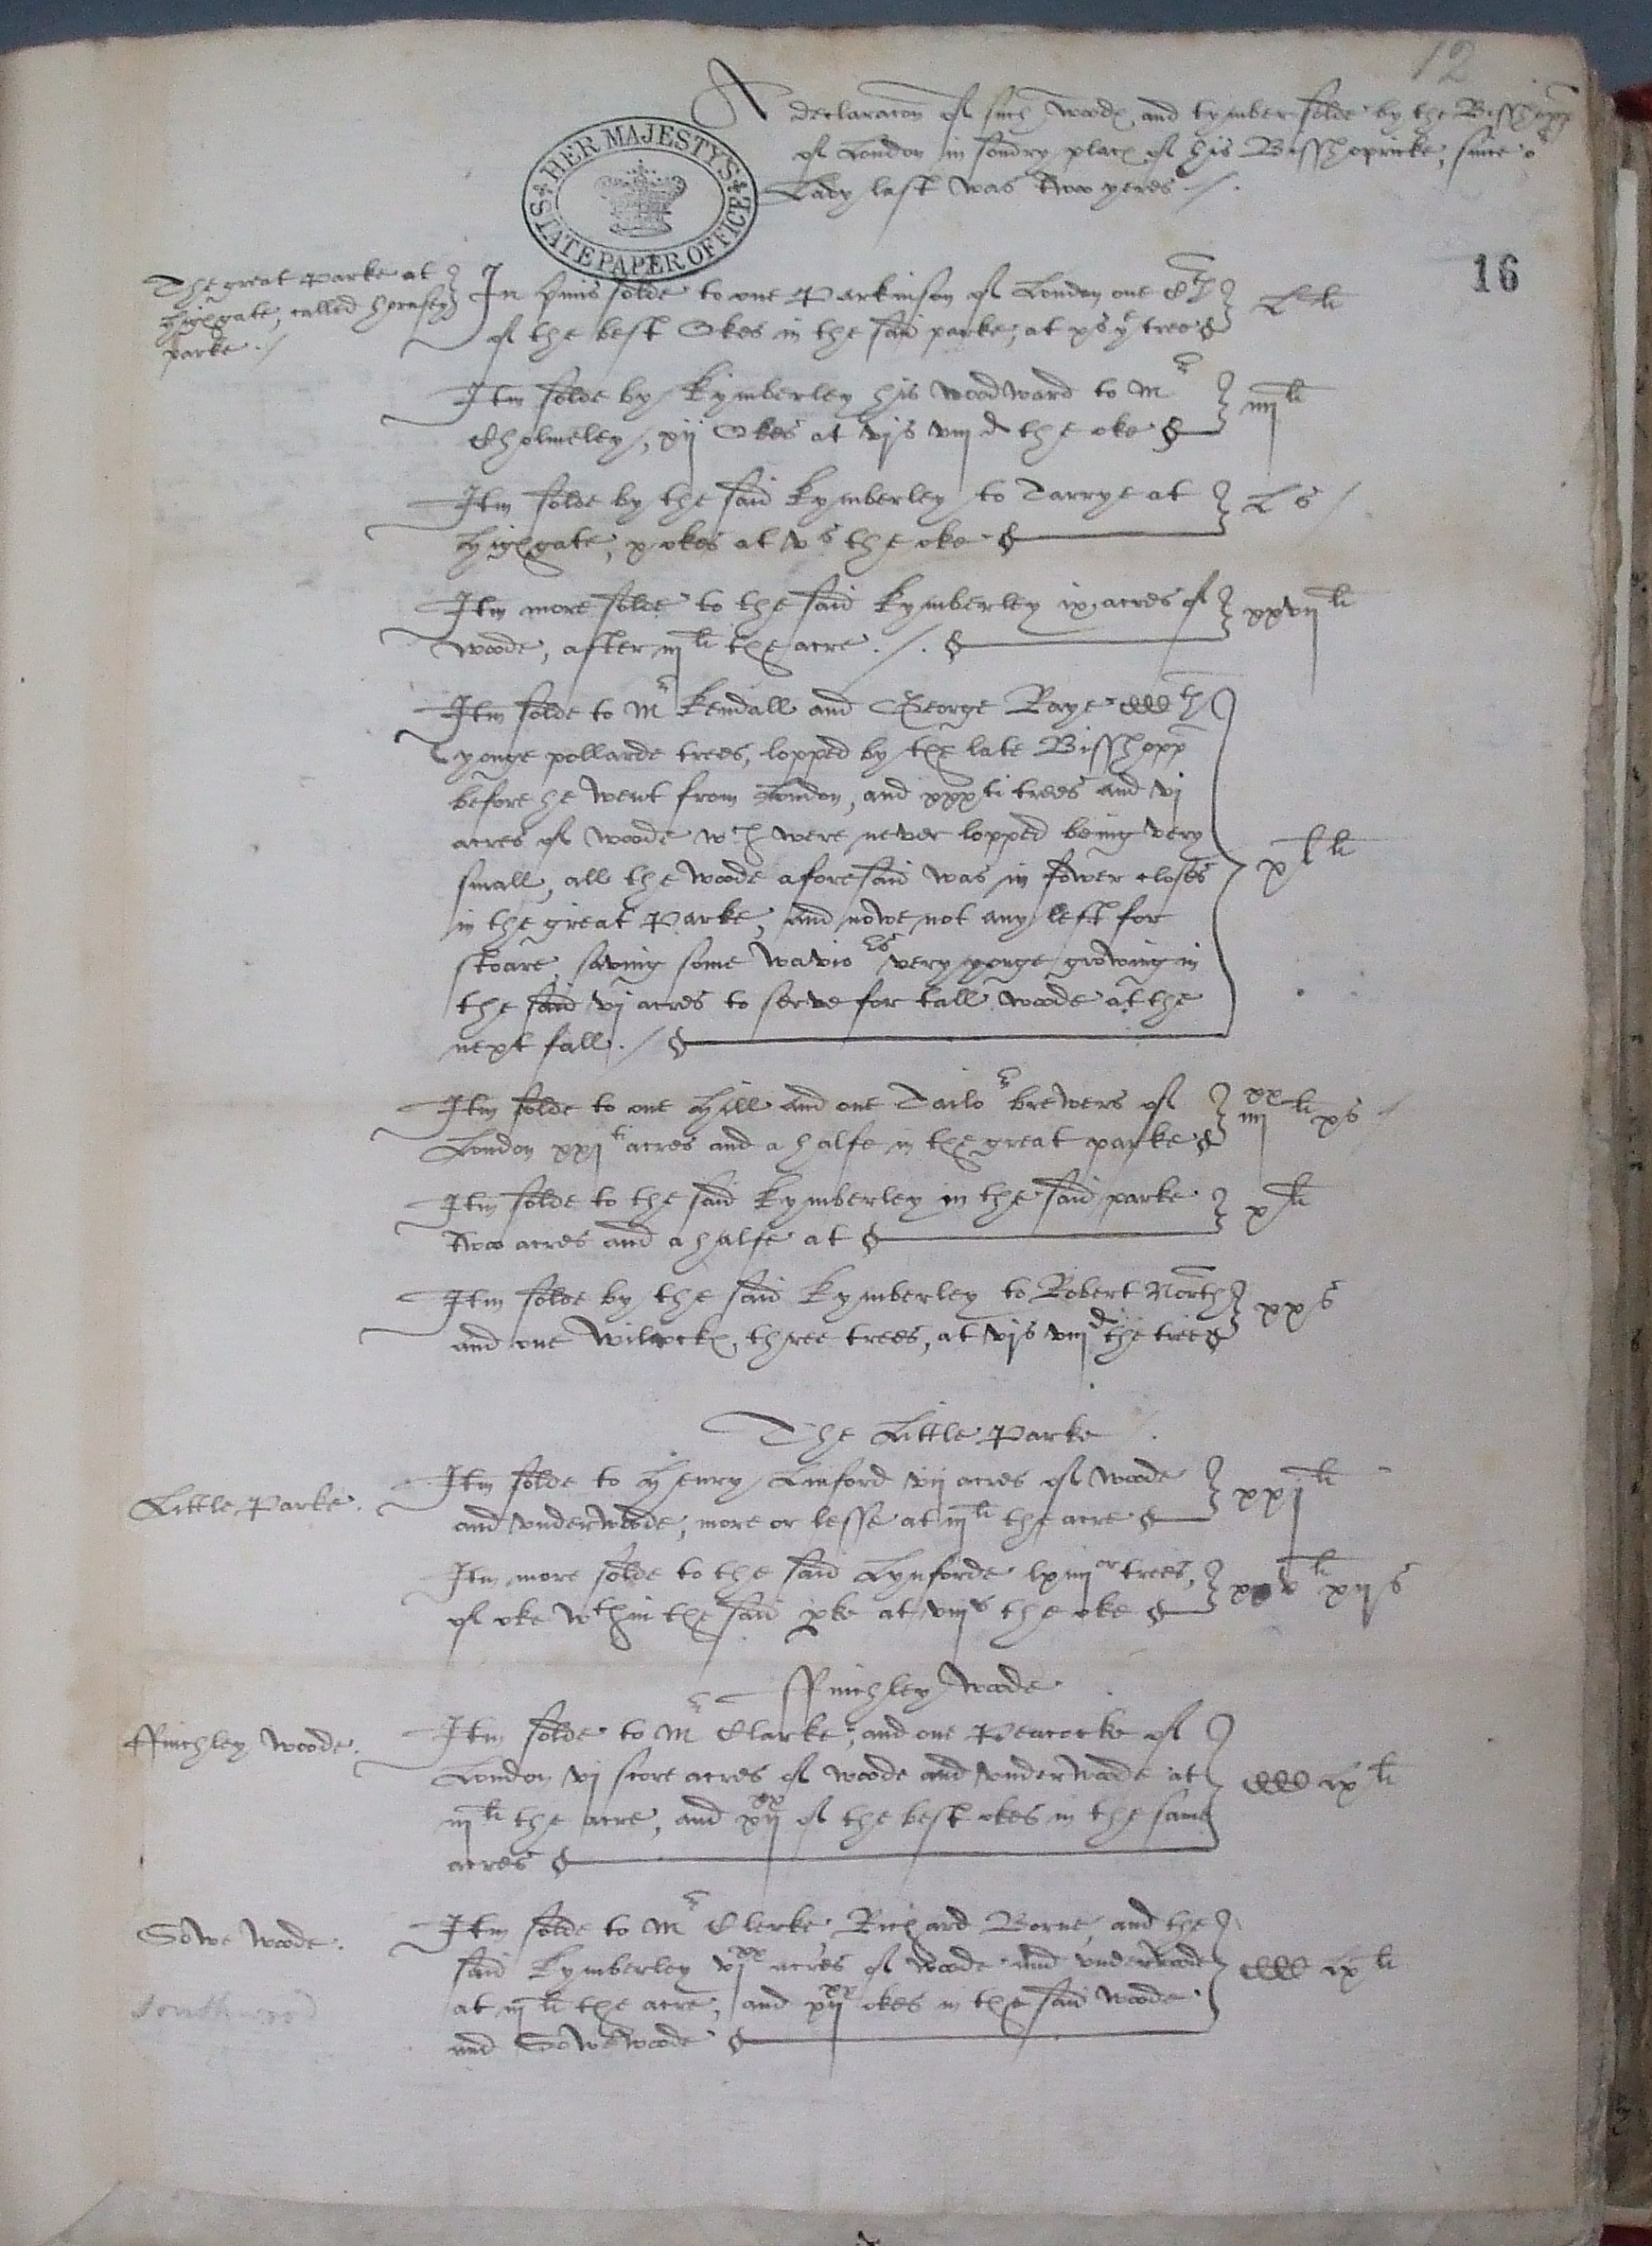 12
A declaracon of such woodes and tymber solde by the Bisshopp
of London in sondry places of his Bisshopricke, since or
Lady last was two yeres /.
HER MAJESTY'S STATE PAPER OFFICE
16
The great Parke at
Highgate, called hornsey
parke ./
In primis solde to one Parkinson of London one Cth
of the best Okes in the said parke, at xs ye tree Lli
Itm solde by Kymberley his woodward to Mr
Cholmeley, xij Okes at vjs viijd the oke iiijli
Itm solde by the said Kymberley to Tarrye at
Highgate, x okes at vs the oke Ls /
Itm more solde to the said Kymberley ix acres of
woode, after iijli the acre ./. xxvijli
Itm solde to Mr Kendall and George Raye CCCth
yonge pollarde trees, lopped by the late Bisshopp
before he went from London, and xxxti trees and vj
acres of woode wch were never lopped being very
small, all the woode aforesaid was in fower closes
in the great Parke, and nowe not any left for
stoare, saving some wavors very yonge growing in
the said vj acres to serve for tall woode at the
next fall ./ xlli
Itm solde to one Hill and one Tailor brewers of
London xxjti acres and a halfe in the great parke iiijxxli xs
Itm solde to the said Kymberley in the said parke
two acres and a halfe at xli
Itm solde by the said Kymberley to Robert North
and one Wilcockes, three trees, at vjs viijd the tree xxs
The Little Parke
Little Parke.
Itm solde to Henry Linford vij acres of woode
and underwoode, more or lesse at iijli the acre xxjli
Itm more solde to the said Lynforde lxiiijor trees,
of oke wthin the said pke at viijs the oke xxvli xijs
Ffinchley woode
Ffinchley woode.
Itm solde to Mr Clarke, and one Peacocke of
London vj score acres of woode and underwoode at
iijli the acre, and xijxx of the best okes in the same
acres CCCLxli
Sowe woode.
Southwood
Itm solde to Mr Clerke, Richard Borne, and the
said Kymberley vjxx acres of woode and underwoode
at iijli the acre, and xijxx okes in the said woode
and Sowewoode CCCLxli